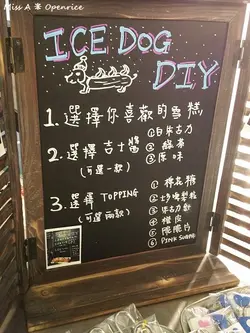 Miss A ※ Openrice
ICE DOG
DIY
1.選擇你喜歡的雪糕
2.選擇 吉士醬
(可選一款)
①白朱古力
②綠茶
③原味
3.選擇 TOPPING
(可選兩款)
①棉花糖
③朱古力
④橙皮
⑤脆脆片
⑥